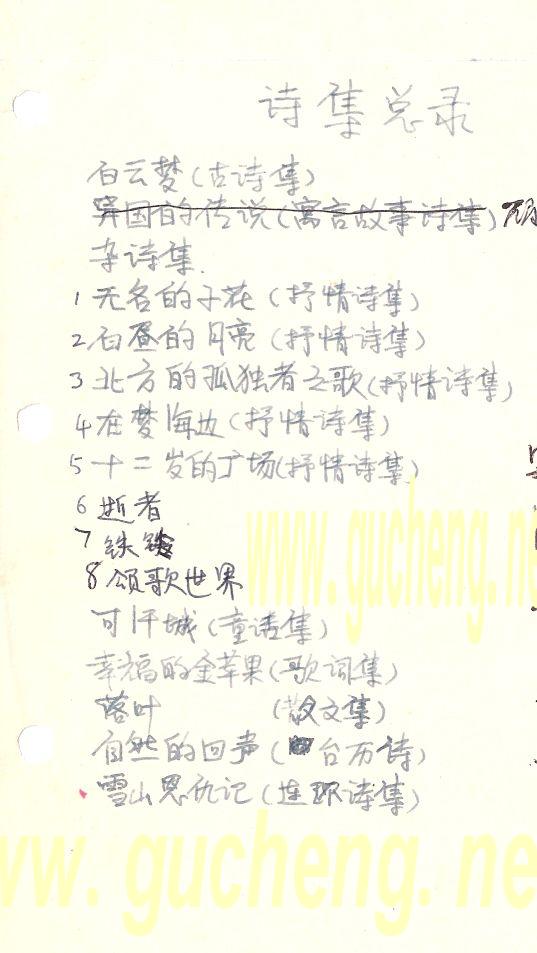 诗集总录
白云梦(古诗集)
异国的传说(寓言故事诗集)
杂诗集.
1 无名的子花(抒情诗集)
2 白昼的月亮(抒情诗集)
3 北方的孤独者之歌(抒情诗集)
4 在梦海边(抒情诗集)
5 十二岁的广场(抒情诗集)
6 逝者
7 铁铃
8 颂歌世界
可汗城(童话集)
幸福的金苹果(歌词集)
落叶 (散文集)
自然的回声(台历诗)
雪山恩仇记(连环诗集)
www.gucheng.ne
ww.gucheng.ne